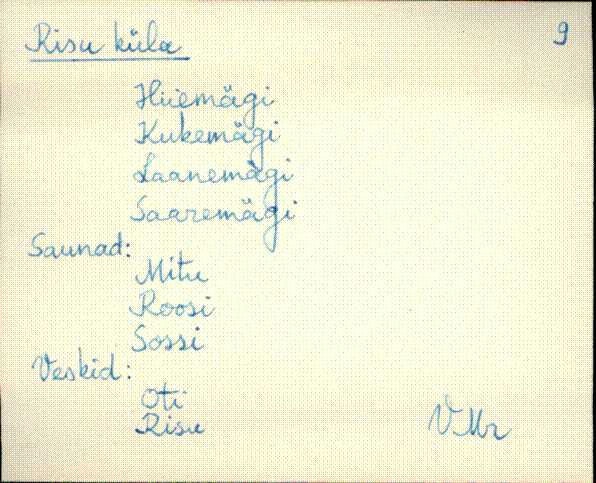 Risu küla 9
Hiiemägi
Kukemägi
Laanemägi
Saaremägi
Saunad:
Mitu
Roosi
Sossi
Veskid:
Oti
Risu
VMr